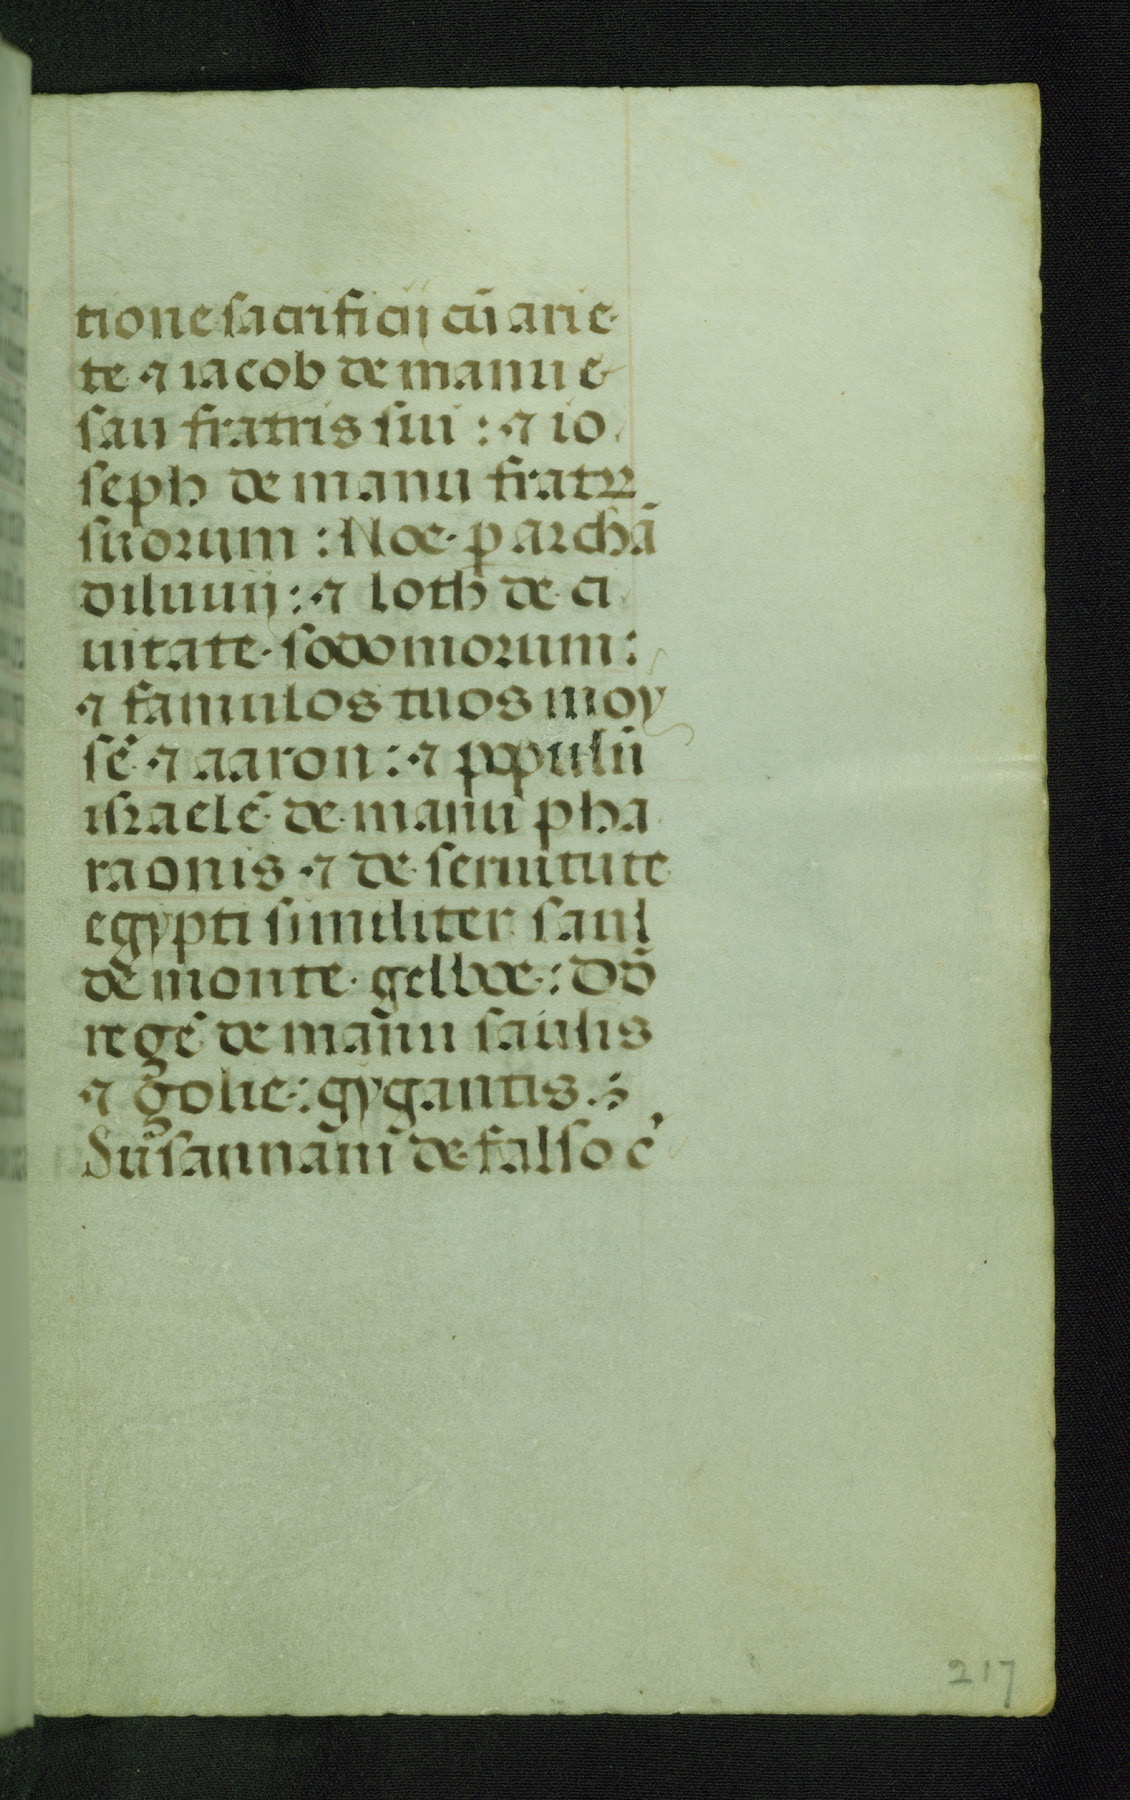 tione sacrificij cū arie
te ⁊ iacob de manu e
sau fratris sui : ⁊ io
seph de manu fratrꝝ
suorum : Noe ꝑ archā
diluuij : ⁊ loth de ci
uitate sodomorum :
⁊ famulos tuos moy
sē ⁊ aaron : ⁊ populū
israelē de manu pha
raonis ⁊ de seruitute
egypti similiter saul
de monte gelboe : Dd̄
regē de manu saulis
⁊ golie : gygantis :
Susannam de falso c̄
217